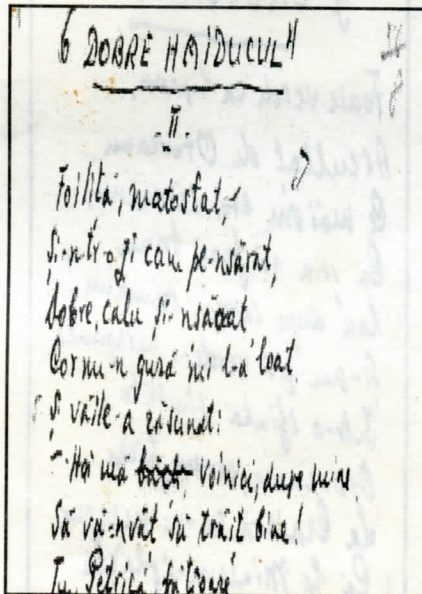 6 DOBRE HAIDUCUL"
II
8
-II-
Foiliță, matostat,
Și-ntr-o zi cam pe-nsărat,
Dobre, calu și-nsăuat
Cornu-n gură mi l-a luat,
Și văile-a răsunat:
- Hai mă voinici, dupe mine
Să vă-nvăt să trăiț bine!
Tu, Petrică, frățioare